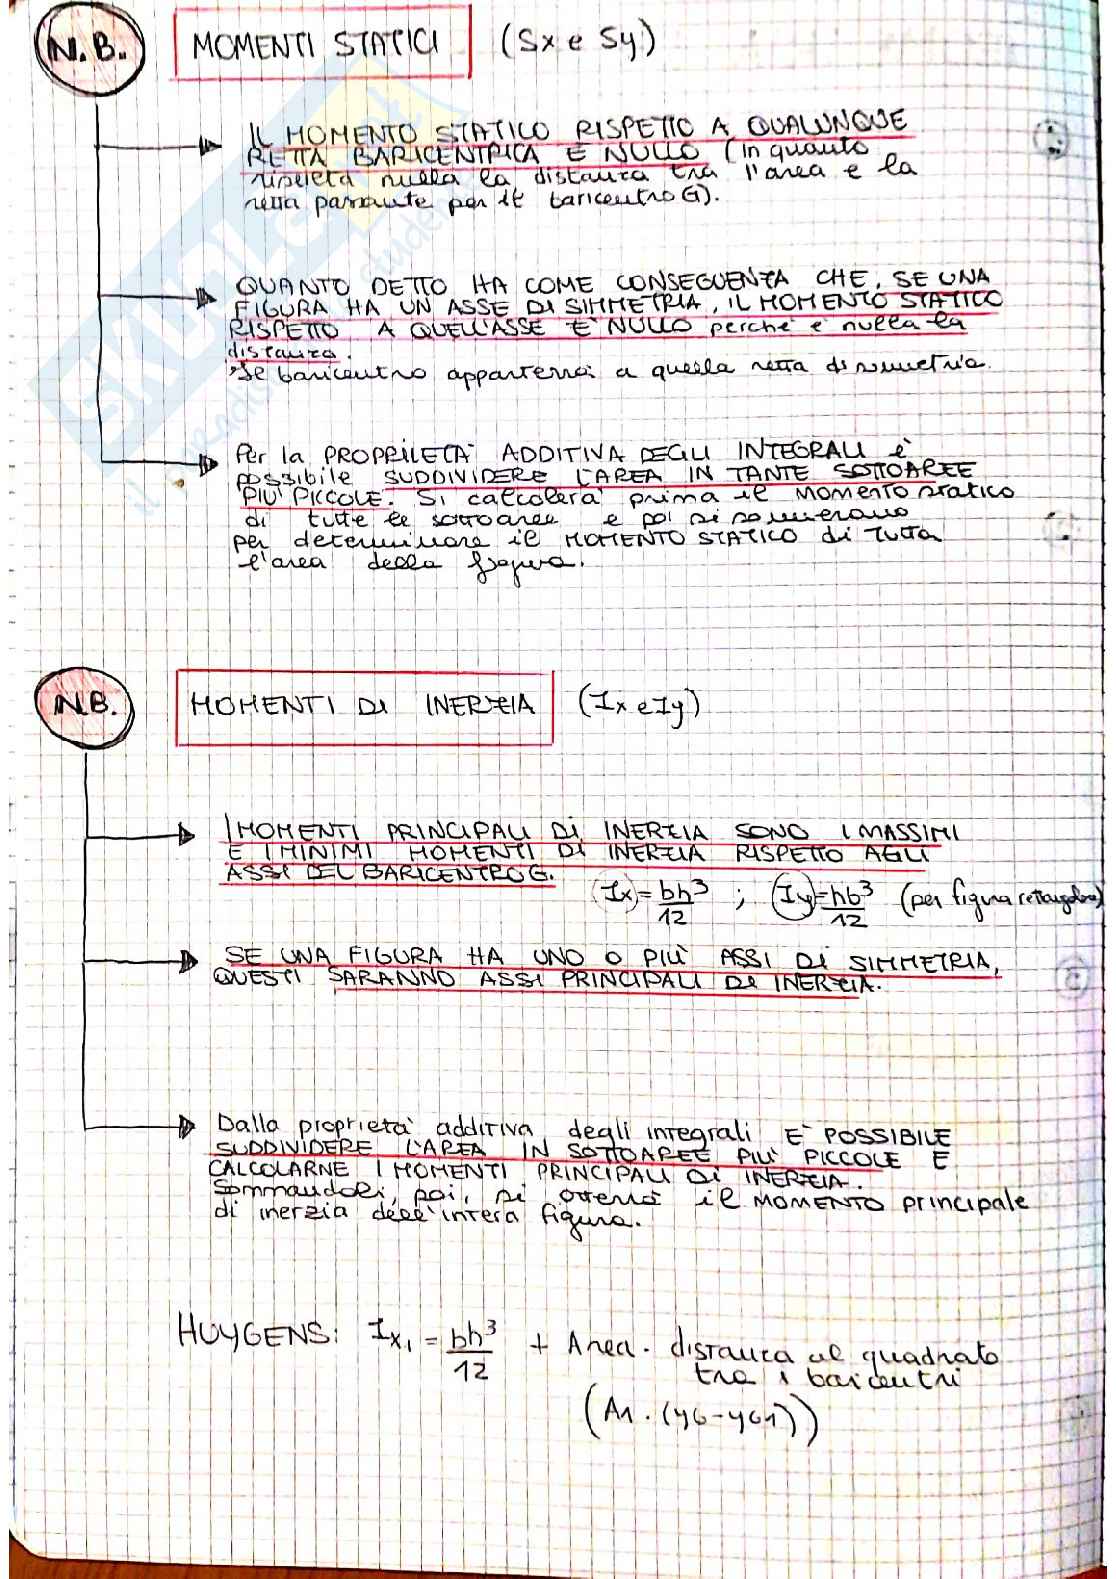 N.B. MOMENTI STATICI (Sx e Sy)
IL MOMENTO STATICO RISPETTO A QUALUNQUE
RETTA BARICENTRICA E' NULLO (in quanto
risulta nulla la distanza tra l'area e la
retta passante per il baricentro G).
QUANTO DETTO HA COME CONSEGUENZA CHE, SE UNA
FIGURA HA UN ASSE DI SIMMETRIA, IL MOMENTO STATICO
RISPETTO A QUELL'ASSE E' NULLO perché è nulla la
distanza.
Il baricentro apparterrà a quella retta di simmetria.
Per la PROPRIETA' ADDITIVA DEGLI INTEGRALI è
possibile SUDDIVIDERE L'AREA IN TANTE SOTTOAREE
PIU' PICCOLE. Si calcolerà prima il momento statico
di tutte le sottoaree e poi si sommerano
per determinare il MOMENTO STATICO di tutta
l'area della figura.
N.B. MOMENTI DI INERZIA (Ix e Iy)
I MOMENTI PRINCIPALI DI INERZIA SONO I MASSIMI
E I MINIMI MOMENTI DI INERZIA RISPETTO AGLI
ASSI DEL BARICENTRO G.
Ix = bh³/12 ; Iy = hb³/12 (per figura rettangolare)
SE UNA FIGURA HA UNO O PIÙ ASSI DI SIMMETRIA,
QUESTI SARANNO ASSI PRINCIPALI DI INERZIA.
Dalla proprietà additiva degli integrali E' POSSIBILE
SUDDIVIDERE L'AREA IN SOTTOAREE PIU' PICCOLE E
CALCOLARNE I MOMENTI PRINCIPALI DI INERZIA.
Sommandoli, poi, si otterrà il MOMENTO principale
di inerzia dell'intera figura.
HUYGENS: Ix₁ = bh³/12 + Area · distanza al quadrato
tra i baricentri
(A1 · (yG-yG1))